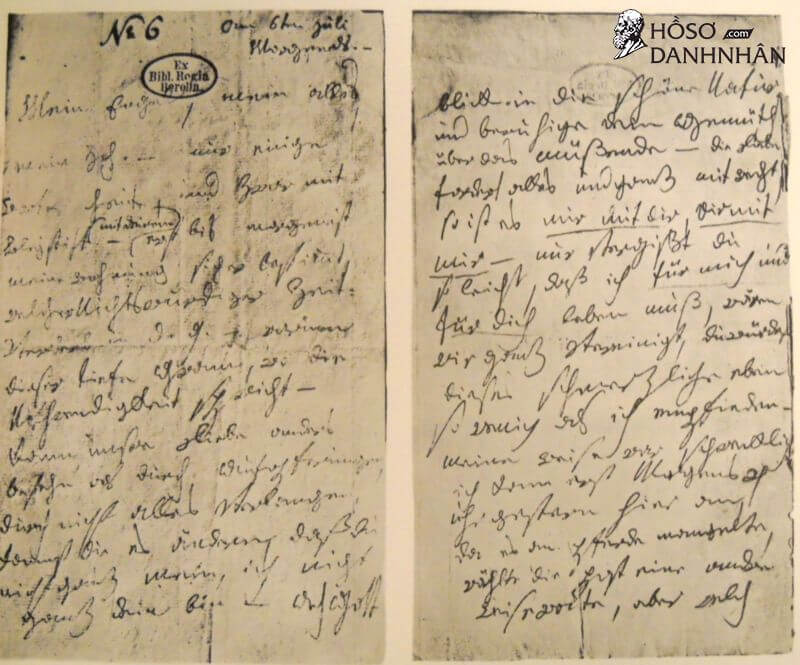 HỒSƠ.com
DANHNHÂN
№ 6
am 6ten Juli
Morgends. –
Ex
Bibl. Regia
Berolin.
Mein Engel, mein alles
mein Ich. – nur einige
Worte heute, und zwar mit
Bleystift – (mit deinem) erst bis morgen ist
meine Wohnung sicher bestimt,
welcher Nichtswürdiger Zeit-
verderb in d. g. – warum
dieser tiefe Gram, wo die
Nothwendigkeit spricht –
Kann unsre Liebe anders
bestehn als durch Aufopferungen,
durch nicht alles verlangen,
kannst du es ändern, daß du
nicht ganz mein, ich nicht
ganz dein bin – Ach Gott
blick in die schöne Natur
und beruhige dein Gemüth
über das müßende – die Liebe
fordert alles und ganz mit recht,
so ist es mir mit dir, dir mit
mir – nur vergißt du
so leicht, daß ich für mich und
für dich leben muß, wären
wir ganz vereinigt, du würdest
dieses schmerzliche eben
so wenig als ich empfinden –
meine Reise war schrecklich
ich kam erst Morgens 4
uhr gestern hier an,
da es an Pferde mangelte,
wählte die Post eine andre
Reiseroute, aber welch